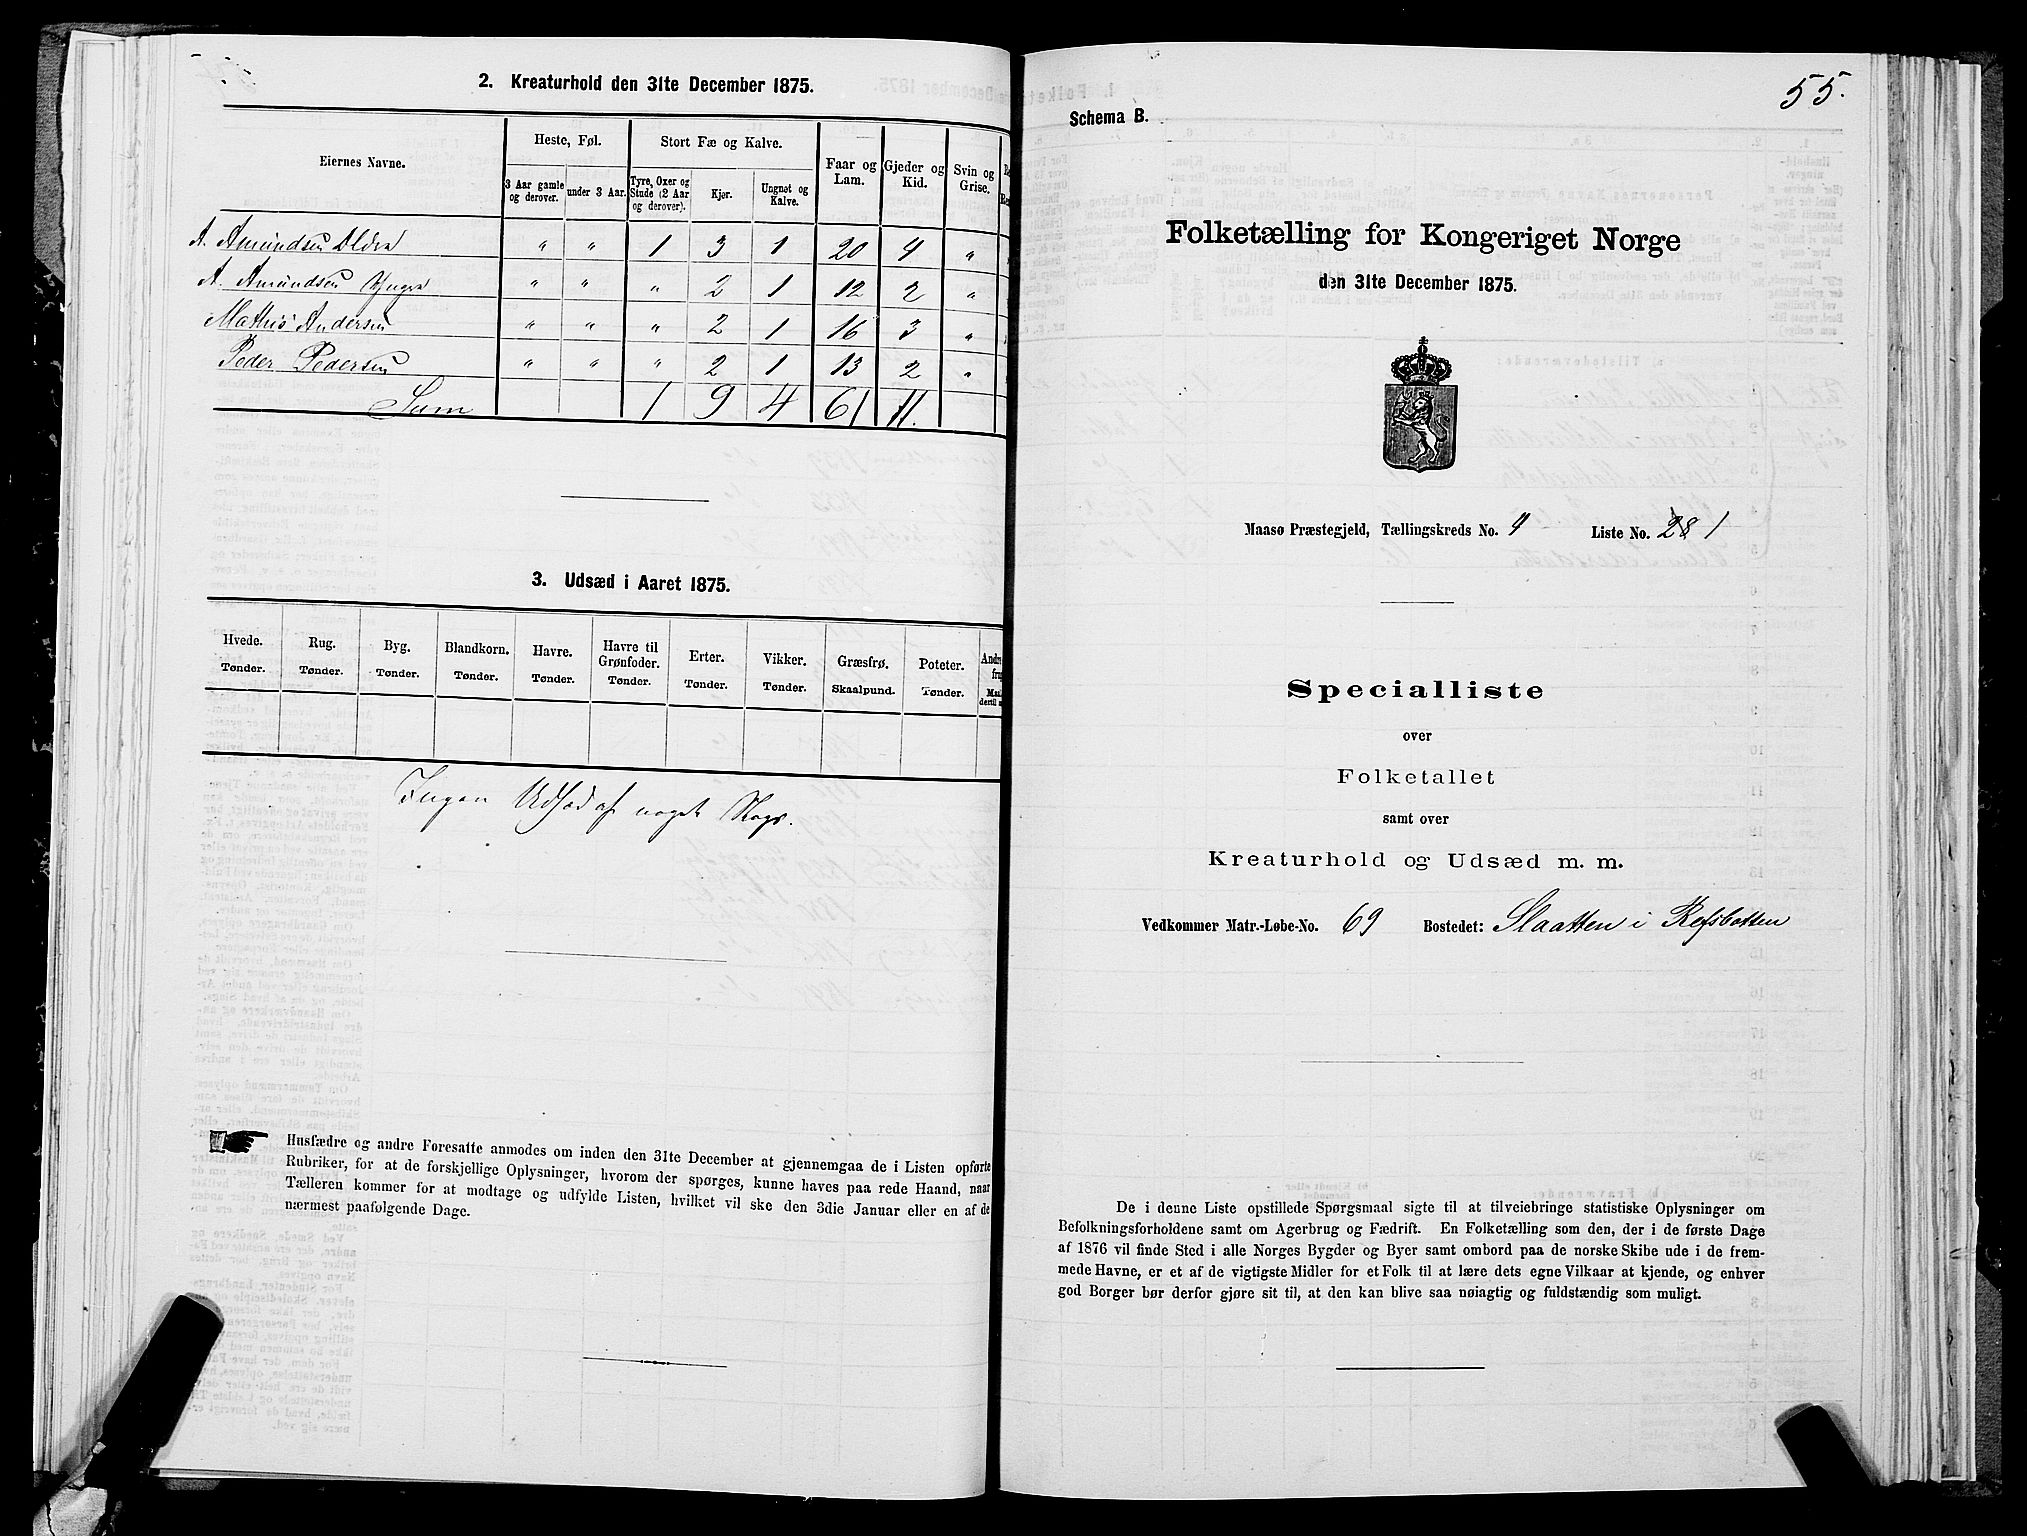 2. Kreaturhold den 31te December 1875.
Eiernes Navne.
Heste, Føl.
Stort Fæ og Kalve.
Faar og Lam.
Gjeder og Kid.
Svin og Grise.
3 Aar gamle og derover.
under 3 Aar.
Tyre, Oxer og Stude (2 Aar og derover).
Kjør.
Ungnøt og Kalve.
A. Amundsen Ældre " " 1 3 1 20 4 "
A. Amundsen Yngre " " " 2 1 12 2 "
Mathis Andersen " " " 2 1 16 3 "
Peder Pedersen " " " 2 1 13 2 "
Sum 1 9 4 61 11.
3. Udsæd i Aaret 1875.
Hvede. Rug. Byg. Blandkorn. Havre. Havre til Grønfoder. Erter. Vikker. Græsfrø. Poteter.
Tønder. Tønder. Tønder. Tønder. Tønder. Tønder. Tønder. Tønder. Skaalpund. Tønder.
Ingen Udsæd af noget Slags.
Husfædre og andre Foresatte anmodes om inden den 31te December at gjennemgaa de i Listen opførte
Rubriker, for at de forskjellige Oplysninger, hvorom der spørges, kunne haves paa rede Haand, naar
Tælleren kommer for at modtage og udfylde Listen, hvilket vil ske den 3die Januar eller en af de
nærmest paafølgende Dage.
55.
Schema B.
Folketælling for Kongeriget Norge
den 31te December 1875.
Maasø Præstegjeld, Tællingskreds No. 4 Liste No. 28 1
Specialliste
over
Folketallet
samt over
Kreaturhold og Udsæd m. m.
Vedkommer Matr.-Løbe-No. 69 Bostedet: Slaatten i Refsbotten
De i denne Liste opstillede Spørgsmaal sigte til at tilveiebringe statistiske Oplysninger om
Befolkningsforholdene samt om Agerbrug og Fædrift. En Folketælling som den, der i de første Dage
af 1876 vil finde Sted i alle Norges Bygder og Byer samt ombord paa de norske Skibe ude i de frem-
mede Havne, er et af de vigtigste Midler for et Folk til at lære dets egne Vilkaar at kjende, og enhver
god Borger bør derfor gjøre sit til, at den kan blive saa nøiagtig og fuldstændig som muligt.